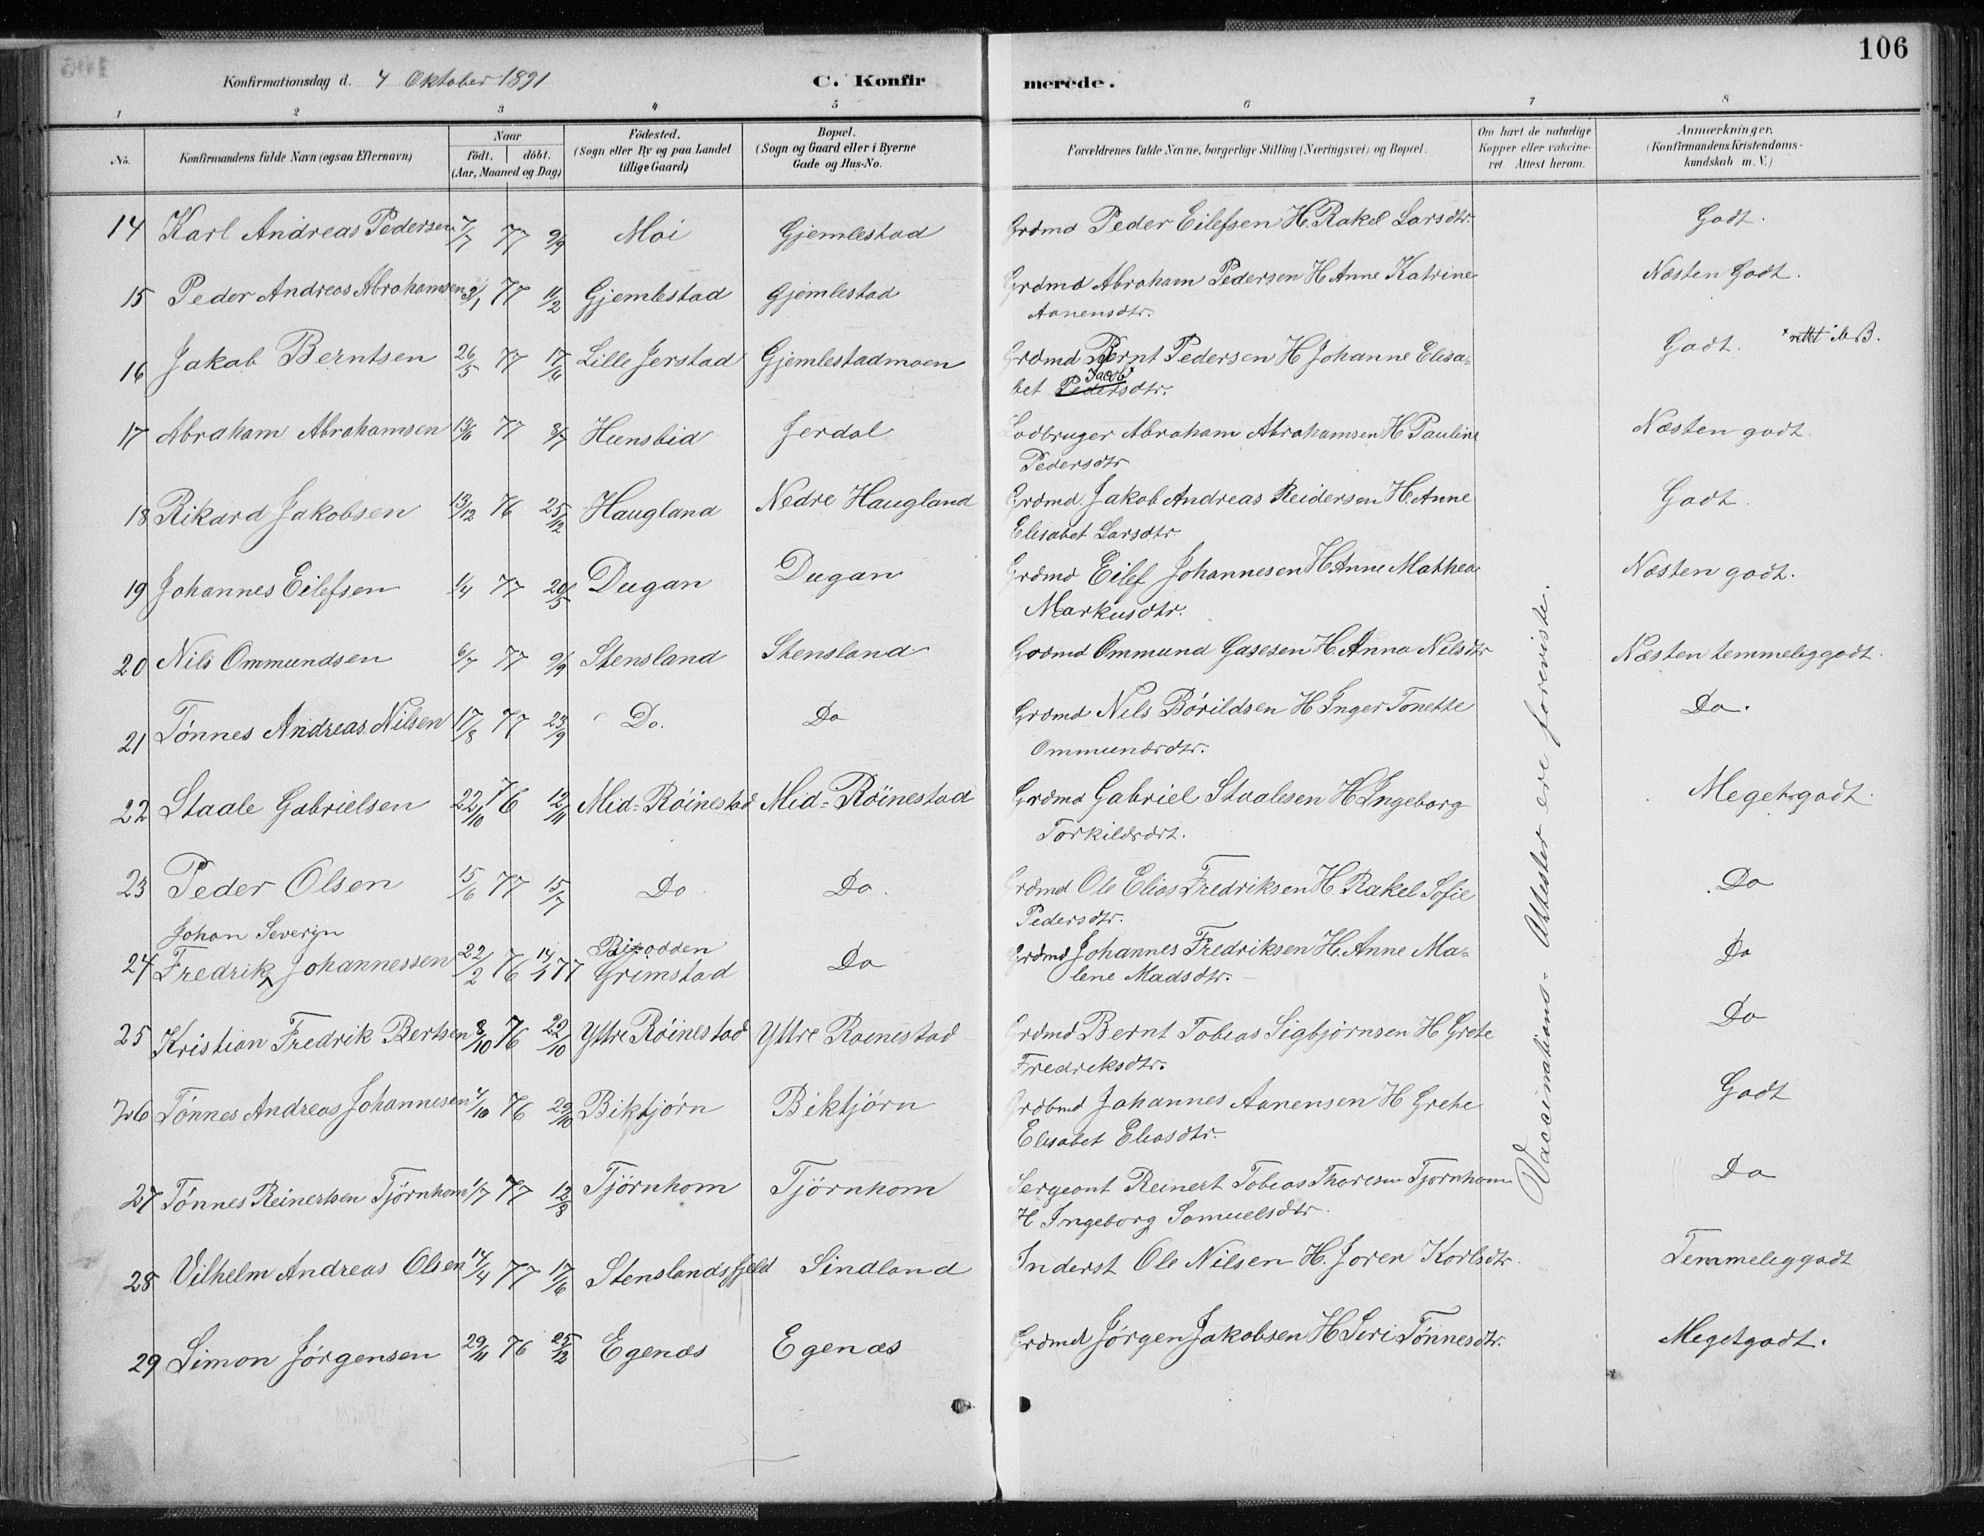 106
Konfirmationsdag d. 4 Oktober 1891 C. Konfirmerede.
1 2 3 4 5 6 7 8
No. Konfirmandens fulde Navn (ogsaa Efternavn) Naar födt. döbt. (Aar, Maaned og Dag) Födested. (Sogn eller By og paa Landet tillige Gaard) Bopæl. (Sogn og Gaard eller i Byerne Gade og Hus-No. Forældrenes fulde Navne, borgerlige Stilling (Næringsvei) og Bopæl. Om havt de naturlige Kopper eller vakcineret. Attest herom. Anmærkninger. (Konfirmandens Kristendomskundskab m. V.)
14 Karl Andreas Pedersen 7/7 77 9/9 Moi Gjemlestad Grdmd Peder Eilefsen H. Rakel Larsdtr. Godt.
15 Peder Andreas Abrahamsen 3/1 77 11/2 Gjemlestad Gjemlestad Grdmd Abraham Pedersen H. Anne Katrine Næsten Godt.
Aanensdtr.
16 Jakob Berntsen 26/5 77 17/6 Lille Jerstad Gjemlestadmoen Grdmd Bernt Pedersen H Johanne Elisa- Godt. × rettet
bet Pedersdtr. Jacob×
17 Abraham Abrahamsen 13/6 77 8/7 Hunsbid Jerdal Lodbruger Abraham Abrahamsen H Pauline Næsten godt.
Pedersdtr
18 Rikard Jakobsen 13/12 76 25/12 Haugland Nedre Haugland Grdmd Jakob Andreas Reidersen H. Anne Godt.
Elisabet Larsdtr
19 Johannes Eilefsen 1/4 77 20/5 Dugan Dugan Grdmd Eilef Johannesen H. Anne Mathea Næsten godt.
Markusdtr.
20 Nils Ommundsen 6/7 77 9/9 Stensland Stensland Grdmd Ommund Gasesen H. Anna Nilsdtr Næsten temmeliggodt.
21 Tönnes Andreas Nilsen 17/8 77 23/9 Do. Do Grdmd Nils Börildsen H Inger Tonette Do.
Ommundsdtr.
22 Staale Gabrielsen 22/10 76 12/11 Mid-Röinestad Mid-Röinestad Grdmd Gabriel Staalesen H. Ingeborg Megetgodt.
Torkildsdrt.
23 Peder Olsen 15/6 77 15/7 Do Do. Grdmd Ole Elias Fredriksen H. Rakel Sofie Do
Pedersdtr.
Johan Severin
24 Fredrik Johannessen 22/2 76 14/1 77 Grimstad Do Grdmd Johannes Fredriksen H. Anne Ma- Do
lene Madsdtr.
25 Kristian Fredrik Bertsen 8/10 76 22/10 Yttre Röinestad Yttre Roinestad Grdmd Bernt Tobias Sigbjörnsen H Grete Do
Fredriksdtr.
26 Tönnes Andreas Johannesen 4/10 76 29/10 Biktjörn Biktjörn Grdbmd Johannes Aanensen H Grete Godt
Elisabet Eliasdtr.
27 Tönnes Reinertsen Tjörnhom 1/7 77 12/8 Tjörnhom Tjörnhom Sergeant Reinert Tobias Thoresen Tjornhom Do
H Ingeborg Samuelsdtr.
28 Vilhelm Andreas Olsen 14/4 77 17/6 Stenslandsfjeld Sindland Inderst Ole Nilsen H. Joren Korlsdtr. Temmeliggodt
29 Simon Jörgensen 29/11 76 25/12 Egenæs Egenæs Grdmd Jörgen Jakobsen H Siri Tönnesdtr. Megetgodt.
Vaccinations-Attester ere foreviste.